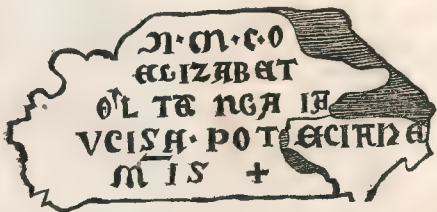 Ɔ·M·C·O
ELIZABET
OL TE NGA IA
VCISA·POT ECIANE
M IS +